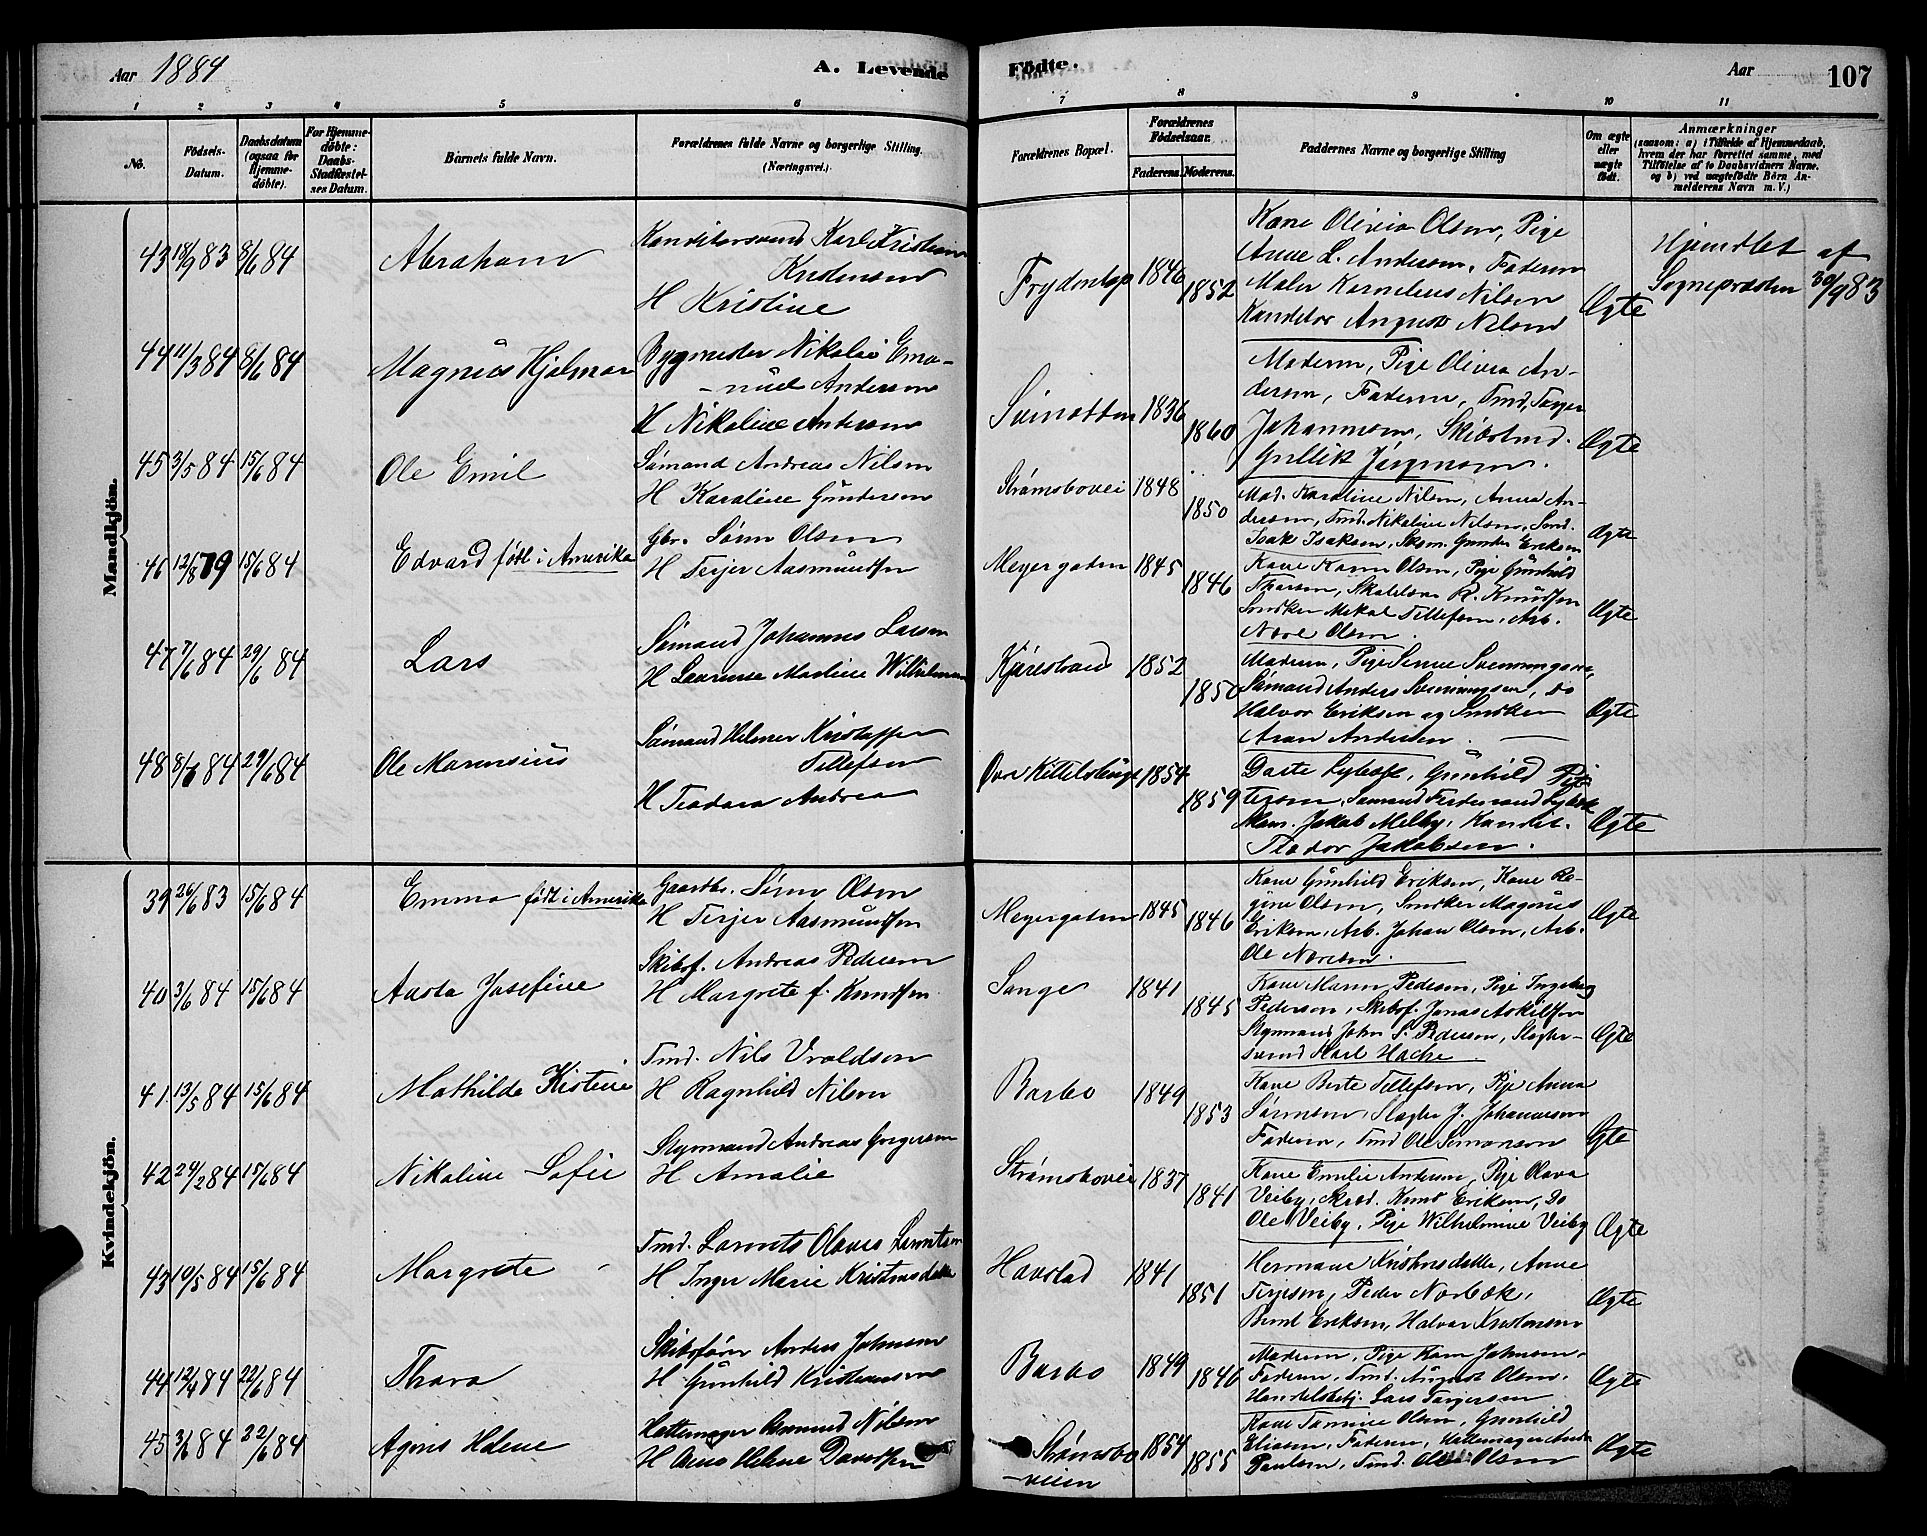 Aar 1884
A. Levende
Födte.
Aar
107
1 2 3 4 5 6 7 8 9 10 11
No.
Födsels-
Datum.
Daabsdatum
(ogsaa for
Hjemme-
döbte).
For Hjemme-
döbte:
Daabs-
Stadfæstel-
ses Datum.
Barnets fulde Navn.
Forældrenes fulde Navne og borgerlige Stilling.
(Næringsvei.)
Forældrenes Bopæl.
Forældrenes
Födselsaar.
Faderens.
Moderens.
Faddernes Navne og borgerlige Stilling
Om ægte
eller
uægte
født.
Anmærkninger
(saasom: a) i Tilfælde af Hjemmedaab,
hvem der har forrettet samme, med
Tilföielse af to Daabsvidners Navne.
og b) ved uægtefödte Börn An-
melderens Navn m. V.)
Mandkjön.
43 18/9 83 8/6 84
Abraham
Konditorsvend Karl Kristian
Kristensen
H Kristine
Frydenlop
1846
1852
Kone Olivia Olsen, Pige
Anne L. Andersen, Faderen
Maler Kornelius Nilsen
Konditor August Nilsen
Ægte
Hjemdbt af
Sognepræsten 30/9 83
44 11/3 84 8/6 84
Magnus Hjalmar
Bygmester Nikolai Ema-
-nuel Andersen
H Nikoline Andersen
Svinodden
1836
1860
Moderen, Pige Olivia An-
dersen, Faderen, Tmd. Torjer
Johannesen, Skibstmd.
Gullik Jörgensen.
Ægte
45 3/5 84 15/6 84
Ole Emil
Sømand Andreas Nilsen
H Karoline Gundersen
Strømsbovei
1848
1850
Mod. Karoline Nilsen, Anna An-
dersen, Tmd. Nikoline Nilsen, Smd.
Isak Isaksen, Skom. Gunder Eriksen
Ægte
46 12/8 79 15/6 84
Edvard født i Amerika
Gbr. Sören Olsen
H Terjer Aasmundsen
Meyergaden
1845
1846
Kone Karen Olsen, Pige Gunhild
Thorsen, R. Knudsen
Snedker Mikal Tellefsen, Arb.
Ole Olsen.
Ægte
47 7/6 84 29/6 84
Lars
Sømand Johannes Larsen
H Laurense Martine Wilhelmsen
1852
1850
Moderen, Pige Signe Svenningsen,
Sømand Anders Svenningsen, do
Halvor Eriksen og Snedker
Aron Andersen.
Ægte
48 8/6 84 29/6 84
Ole Marensius
Sømand Helmer Kristoffer
Tellefsen
H Teodora Andrea
1854
1859
Dorte Lybæk, Gunhild Pet-
tersen, Sømand Ferdinand Lybæk
Jakob Melby, Kondit.
Teodor Jakobsen.
Ægte
Kvindekjön.
39 26/6 83 15/6 84
Emma født i Amerika
Gaardbr. Sören Olsen
H Terjer Aasmundsen
Meyergaden
1845
1846
Kone Gunhild Eriksen, Kone Re-
gine Olsen, Snedker Magnus
Eriksen, Arb. Johan Olsen, Arb.
Ole Noresen.
Ægte
40 3/6 84 15/6 84
Aasta Josefine
Skibsf. Andreas Pedersen
H Margrete f. Knudsen
Songe
1841
1845
Kone Maren Pedersen, Pige Ingeborg
Pedersen, Skibsf. Jonas Askildsen
Styrmand John S. Pedersen, Slagter-
svend Karl Hache.
Ægte
41 13/5 84 15/6 84
Mathilde Kistine
Tmd. Nils Vroldsen
H Ragnhild Nilsen
Barbo
1849
1853
Kone Berte Tellefsen, Pige Anna
Sørensen, Slagter J. Johannesen
Faderen, Tmd Ole Simonsen
Ægte
42 29/2 84 15/6 84
Nikoline Sofie
Styrmand Andreas Gregersen
H Amalie
Strømsbovei
1837
1841
Kone Emilie Andersen, Pige Olava
Veiby, Skræd. Knut Eriksen, Do
Ole Veiby, Pige Wilhelmine Veiby
Ægte
43 19/5 84 15/6 84
Margrete
Tmd. Lorents Olaves Lorentsen
H Inger Marie Kristensdatter
Havstad
1841
1851
Hermane Kristensdatter, Anne
Terjesen, Peder Norbæk,
Bernt Eriksen, Halvor Kristensen
Ægte
44 12/4 84 22/6 84
Thora
Skibsfører Anders Johnsen
H Gunhild Kristiansen
Barbo
1849
1846
Moderen, Pige Karen Johnsen,
Faderen, Tmd. August Olsen,
Handelsbetj. Lars Torgersen
Ægte
45 3/6 84 22/6 84
Agnes Helene
Hattemager Osmund Nilsen
H Anne Helene Davidsen
Strømsbo
-veien
1854
1855
Kone Tomine Olsen, Gunhild
Eliasen, Faderen, Hattemager Andr.
Paulsen, Tmd. Oluf Olsen
Ægte